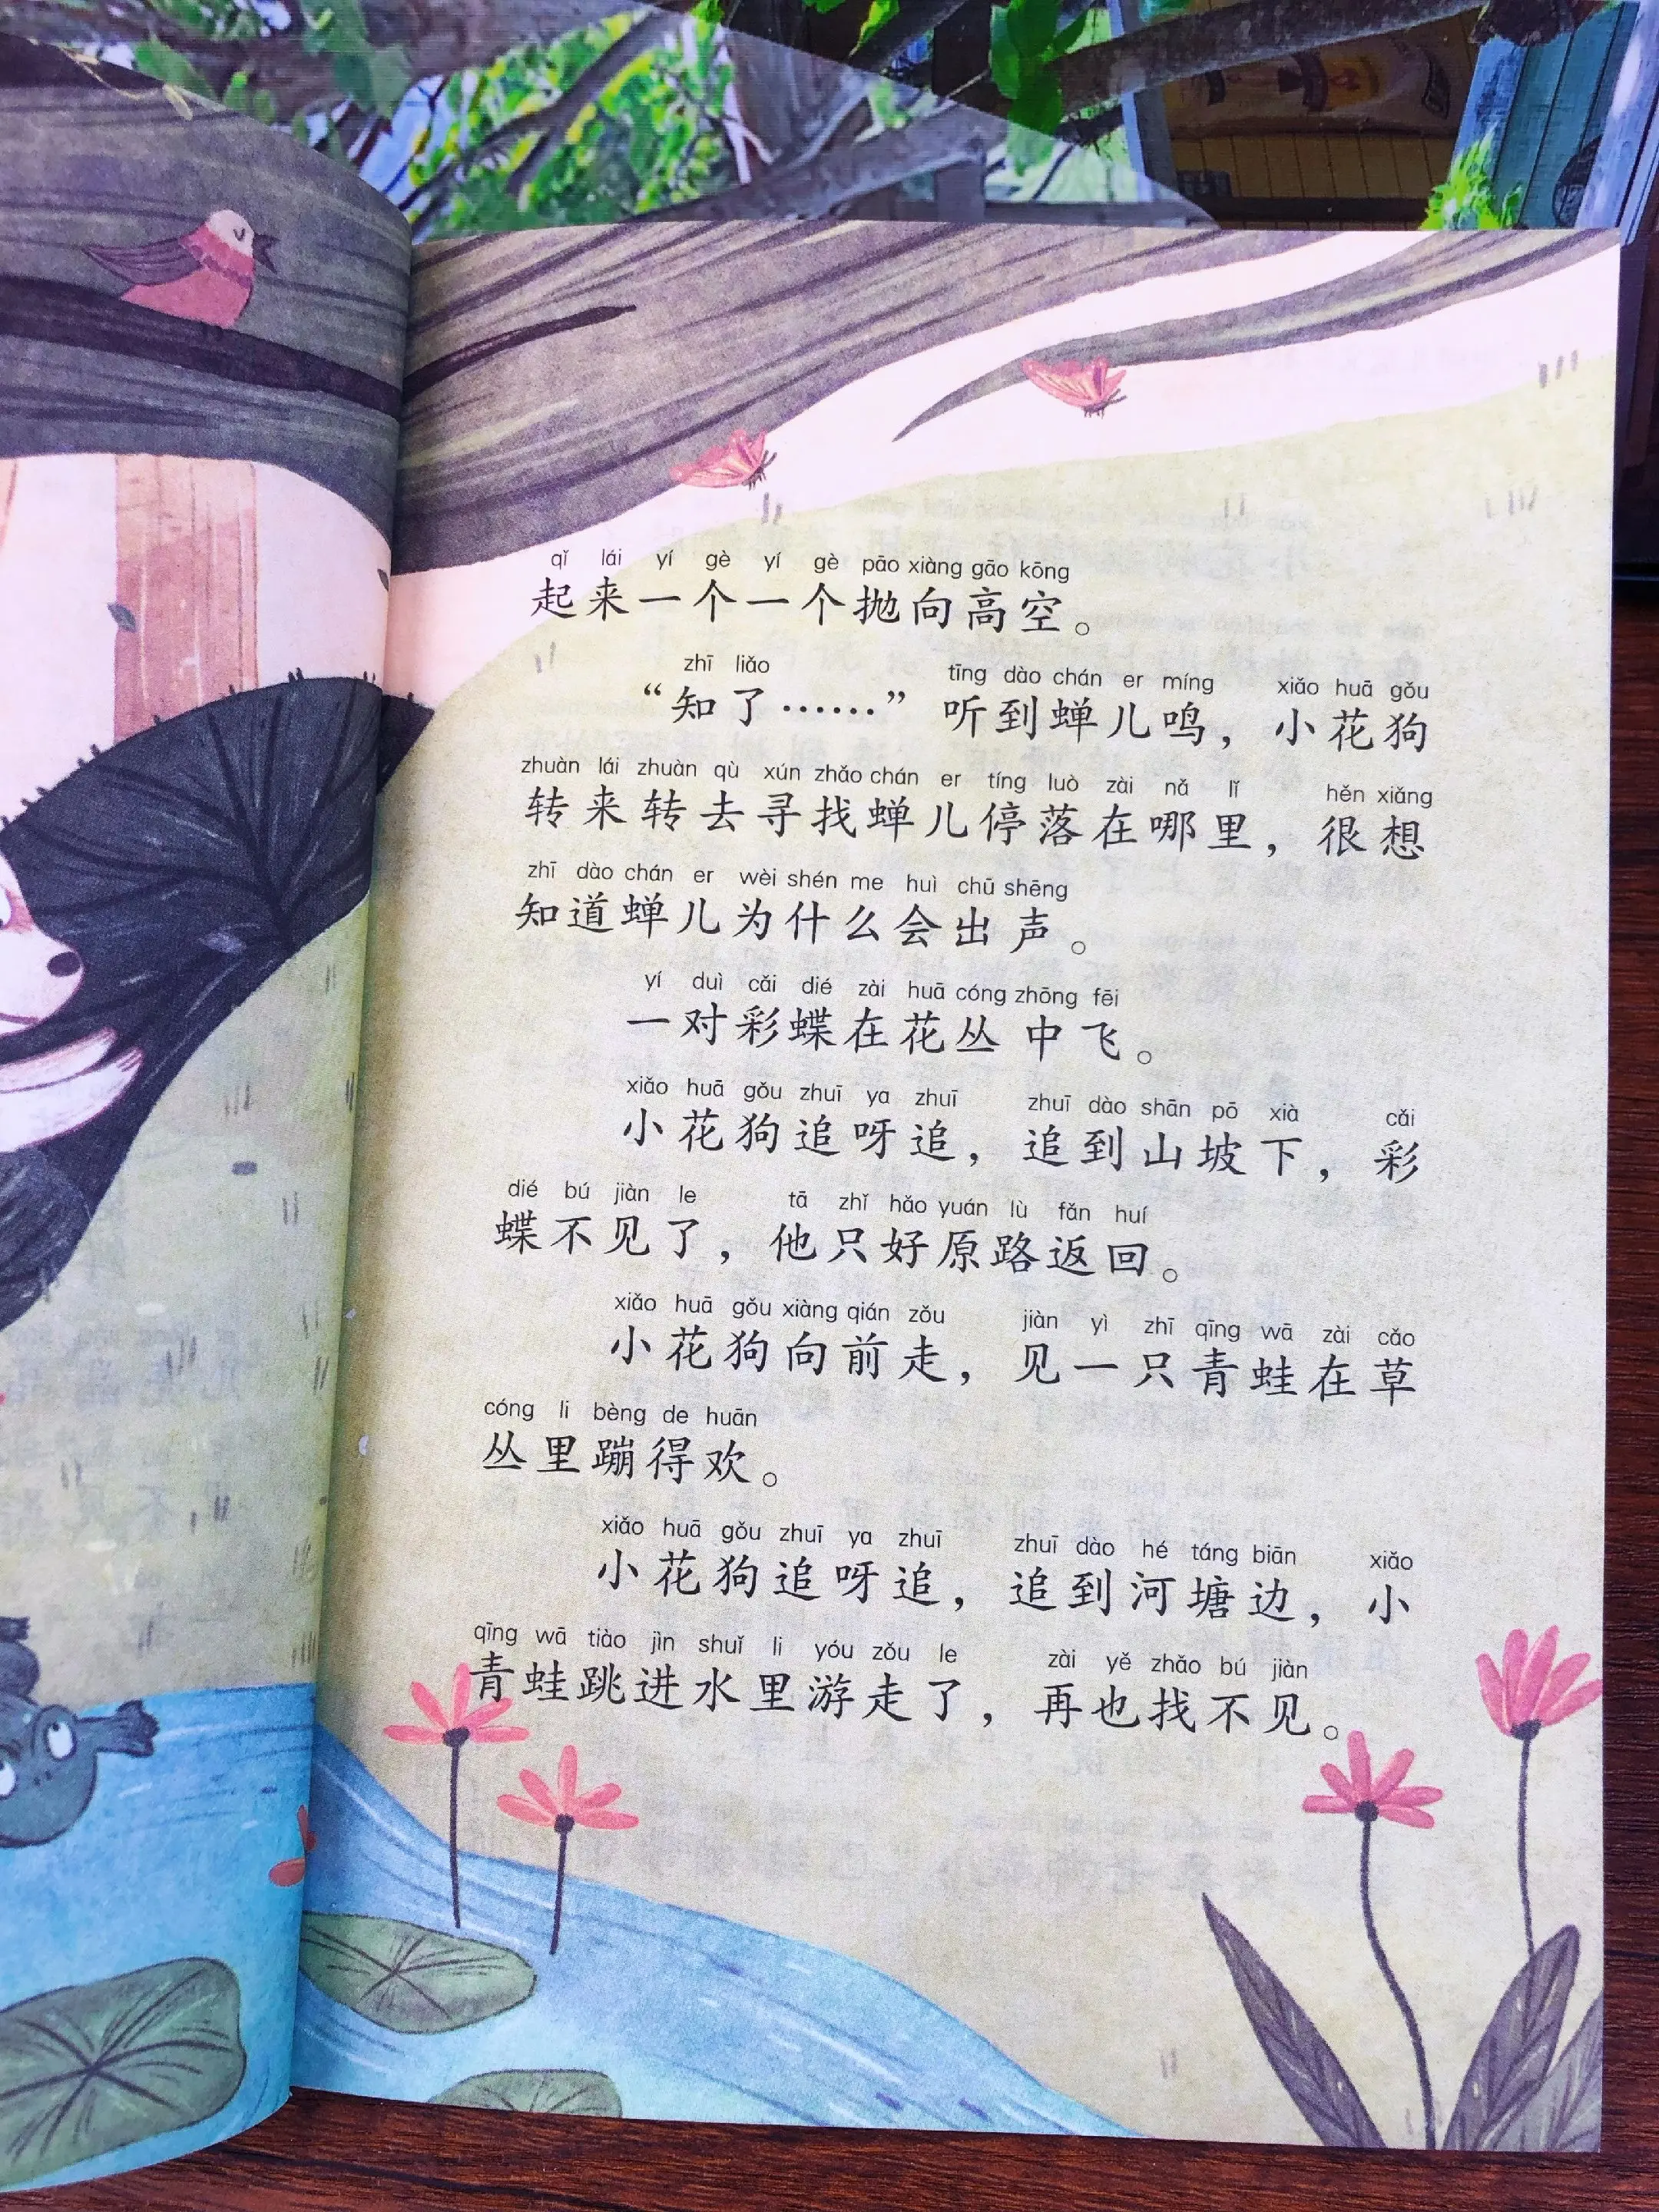 qǐ lái yí gè yí gè pāo xiàng gāo kōng
起来一个一个抛向高空。
zhī liǎo tīng dào chán er míng xiǎo huā gǒu
“知了……”听到蝉儿鸣，小花狗
zhuàn lái zhuàn qù xún zhǎo chán er tíng luò zài nǎ lǐ hěn xiǎng
转来转去寻找蝉儿停落在哪里，很想
zhī dào chán er wèi shén me huì chū shēng
知道蝉儿为什么会出声。
yí duì cǎi dié zài huā cóng zhōng fēi
一对彩蝶在花丛中飞。
xiǎo huā gǒu zhuī ya zhuī zhuī dào shān pō xià cǎi
小花狗追呀追，追到山坡下，彩
dié bú jiàn le tā zhǐ hǎo yuán lù fǎn huí
蝶不见了，他只好原路返回。
xiǎo huā gǒu xiàng qián zǒu jiàn yì zhī qīng wā zài cǎo
小花狗向前走，见一只青蛙在草
cóng li bèng de huān
丛里蹦得欢。
xiǎo huā gǒu zhuī ya zhuī zhuī dào hé táng biān xiǎo
小花狗追呀追，追到河塘边，小
qīng wā tiào jìn shuǐ li yóu zǒu le zài yě zhǎo bú jiàn
青蛙跳进水里游走了，再也找不见。